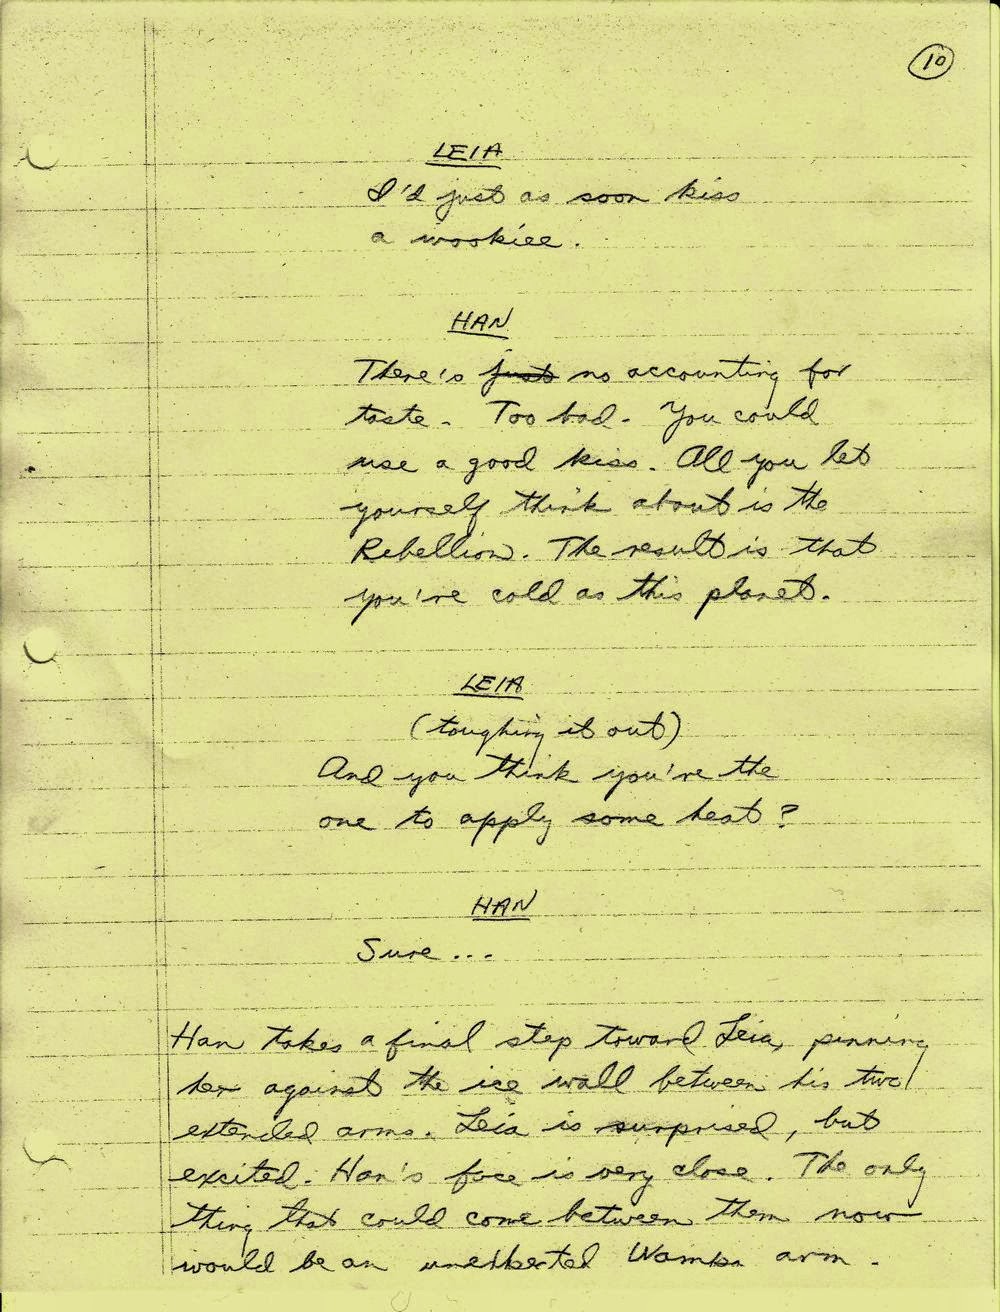 10
LEIA
I'd just as soon kiss
a wookiee.
HAN
There's just no accounting for
taste. Too bad. You could
use a good kiss. All you let
yourself think about is the
Rebellion. The result is that
you're cold as this planet.
LEIA
(toughing it out)
And you think you're the
one to apply some heat?
HAN
Sure...
Han takes a final step toward Leia, pinning
her against the ice wall between his two
extended arms. Leia is surprised, but
excited. Han's face is very close. The only
thing that could come between them now
would be an unexpected Wampa arm.